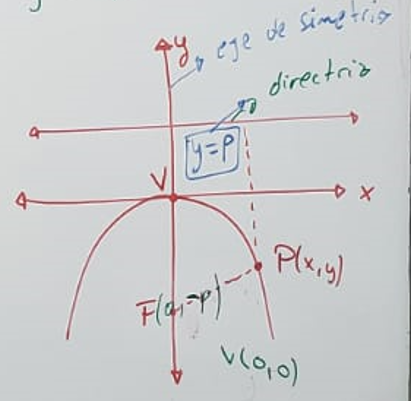 y
eje de simetria
directriz
y=P
V
x
P(x,y)
F(0,-p)
V(0,0)